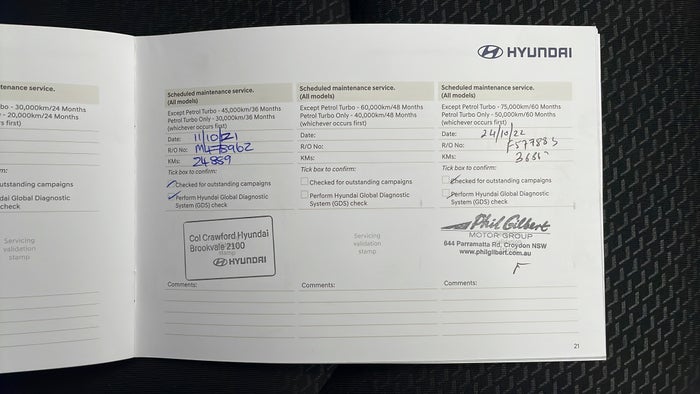 HYUNDAI
tenance service.
- 30,000km/24 Months
- 20,000km/24 Months
s first)
m:
utstanding campaigns
dai Global Diagnostic
check
Servicing
validation
stamp
Scheduled maintenance service.
(All models)
Except Petrol Turbo - 45,000km/36 Months
Petrol Turbo Only - 30,000km/36 Months
(whichever occurs first)
Date: 11/10/21
R/O No:
KMs: 24889
Tick box to confirm:
Checked for outstanding campaigns
Perform Hyundai Global Diagnostic
System (GDS) check
Col Crawford Hyundai
Brookvale 2100
stamp
HYUNDAI
Comments:
Scheduled maintenance service.
(All models)
Except Petrol Turbo - 60,000km/48 Months
Petrol Turbo Only - 40,000km/48 Months
(whichever occurs first)
Date:
R/O No:
KMs:
Tick box to confirm:
Checked for outstanding campaigns
Perform Hyundai Global Diagnostic
System (GDS) check
Servicing
validation
stamp
Comments:
Scheduled maintenance service.
(All models)
Except Petrol Turbo - 75,000km/60 Months
Petrol Turbo Only - 50,000km/60 Months
(whichever occurs first)
Date: 24/10/22
R/O No:
KMs:
Tick box to confirm:
Checked for outstanding campaigns
Perform Hyundai Global Diagnostic
System (GDS) check
Phil Gilbert
MOTOR GROUP
644 Parramatta Rd, Croydon NSW
www.philgilbert.com.au
F
Comments:
21